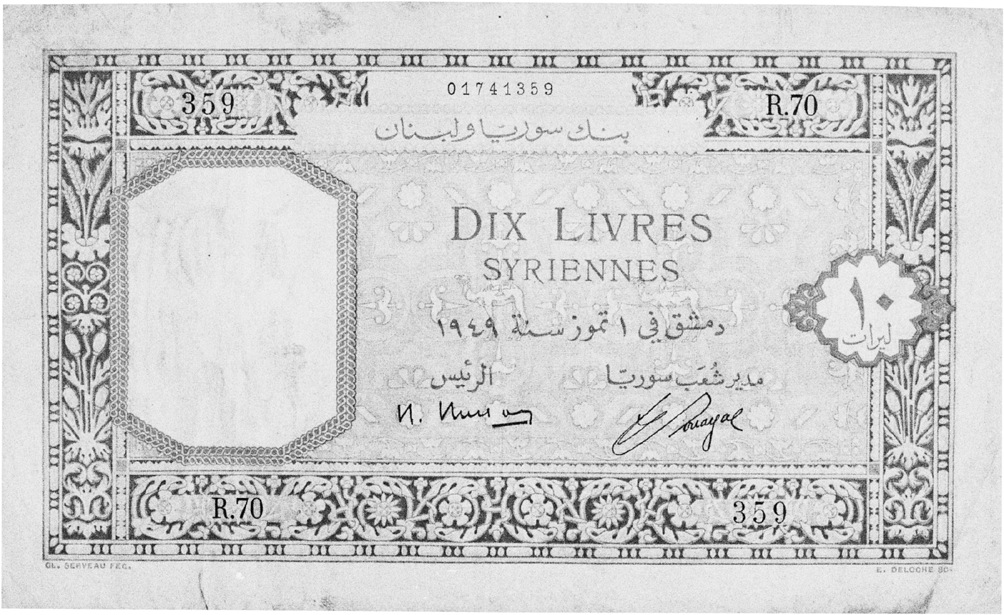 01741359
359
R.70
بنك سوريا ولبنان
DIX LIVRES
SYRIENNES
١٠
ليرات
دمشق في ١ تموز سنة ١٩٤٩
مدير شُعَب سوريّا
الرئيس
R.70
359
CL. SERVEAU FEC.
E. DELOCHE SC.